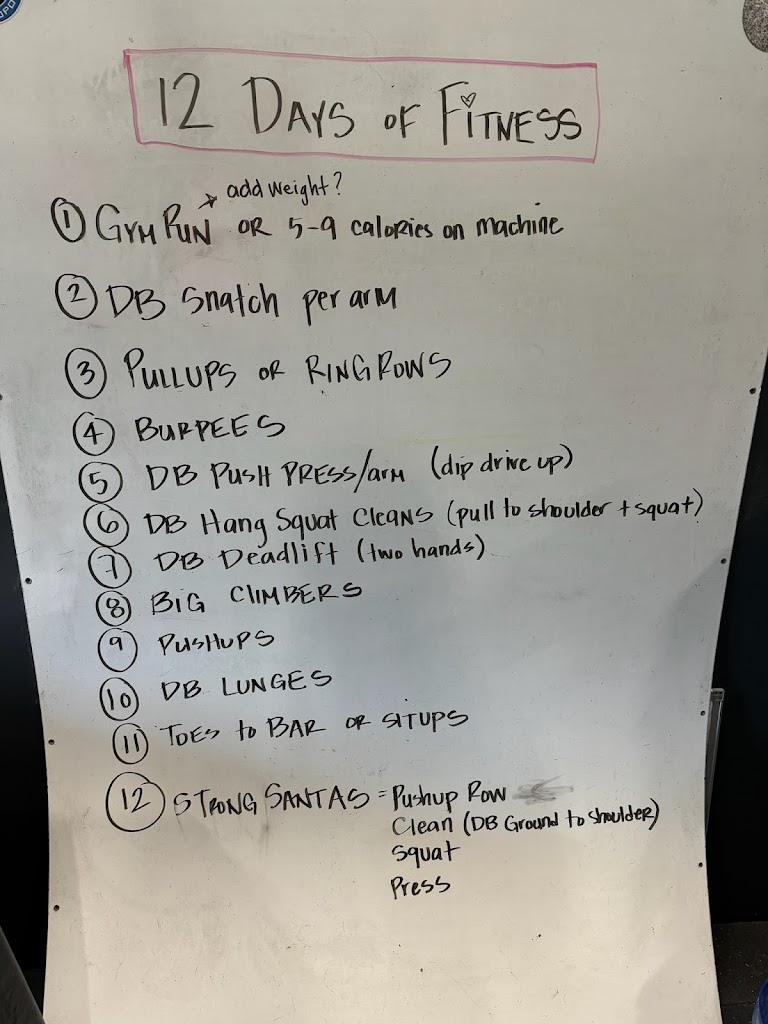 12 DAYS OF FITNESS
add weight?
1 GYM RUN OR 5-9 calories on machine
2 DB Snatch per arm
3 PULLUPS OR RING ROWS
4 BURPEES
5 DB PUSH PRESS/arm (dip drive up)
6 DB Hang Squat Cleans (pull to shoulder + squat)
7 DB Deadlift (two hands)
8 BIG CLIMBERS
9 PUSHUPS
10 DB LUNGES
11 TOES to BAR OR SITUPS
12 STRONG SANTAS = Pushup Row
Clean (DB Ground to Shoulder)
Squat
Press